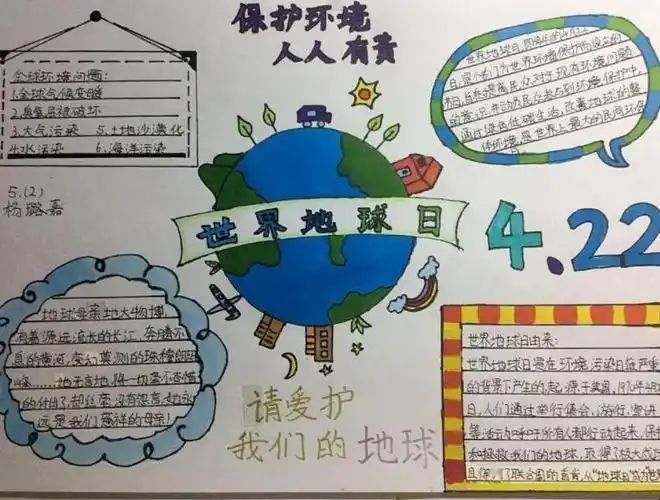 保护环境
人人有责
全球环境问题:
1.全球气候变暖
2.臭氧层被破坏
3.大气污染 5.土地沙漠化
4.水污染 6.海洋污染
5.(2)
杨璐嘉
世界地球日,即每年的4月22
日,是一个专门为世界环境保护而设立的
节日,旨在提高民众对于现有环境问题
的意识,并动员民众参与到环境保护中,
通过绿色低碳生活,改善地球的整
体环境,是世界上最大的民间环保
世界地球日
4.22
地球母亲地大物博,
有着源远流长的长江,奔腾不
息的黄河,变幻莫测的
她无言地将一切毫不吝惜
的付出了,却丝毫没有怨言,她永
远是我们慈祥的母亲!
请爱护
我们的地球
世界地球日由来:
世界地球日是在环境污染日益严重
的背景下产生的,起源于美国,1970年4月
日,人们通过举行集会、游行、宣讲
等活动呼吁所有人都行动起来,保护
和拯救我们的地球,取得了极大成功
了联合国的首肯,从"地球日"成为世